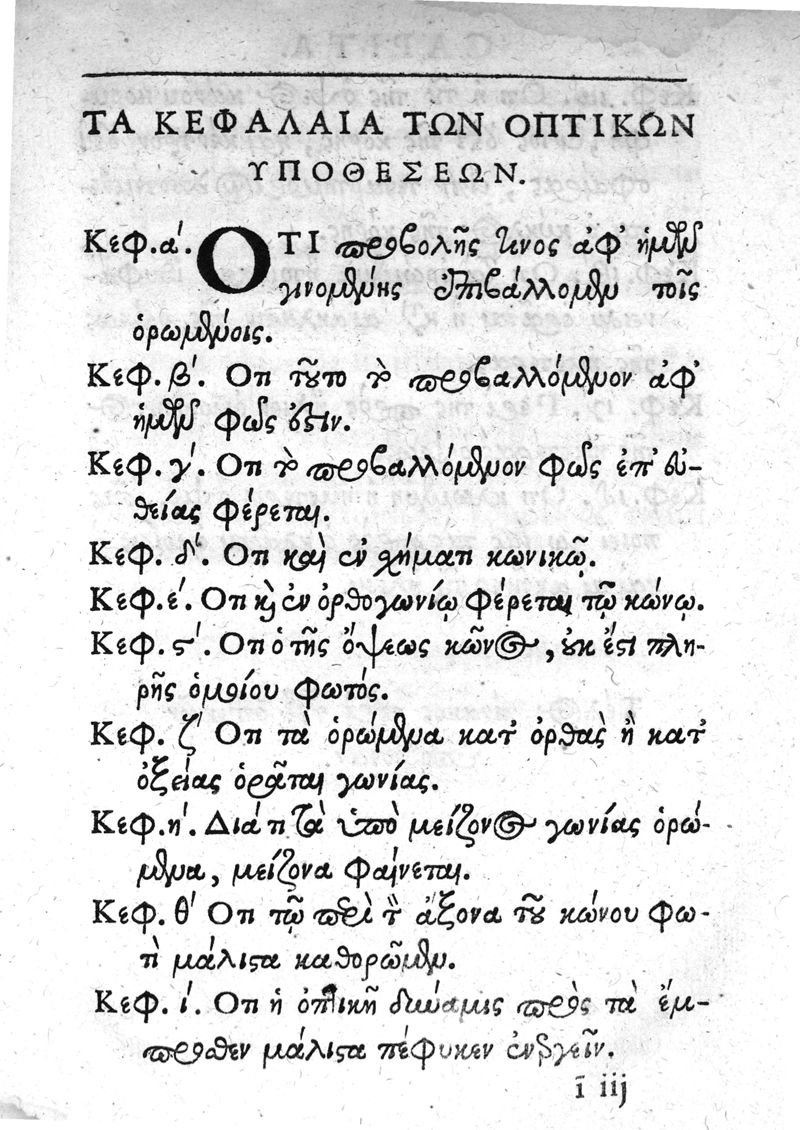 ΤΑ ΚΕΦΑΛΑΙΑ ΤΩΝ ΟΠΤΙΚΩΝ
ΥΠΟΘΕΣΕΩΝ.
Κεφ. α΄. ΟΤΙ προβολῆς τινος ἀφ' ἡμῶν
γινομένης ἐπιβάλλομεν τοῖς
ὁρωμένοις.
Κεφ. β΄. Οτι τοῦτο τὸ προβαλλόμενον ἀφ'
ἡμῶν φῶς ἐστιν.
Κεφ. γ΄. Οτι τὸ προβαλλόμενον φῶς ἐπ' εὐ-
θείας φέρεται.
Κεφ. δ΄. Οτι καὶ ἐν χήματι κωνικῷ.
Κεφ. ε΄. Οτι καὶ ἐν ὀρθογωνίῳ φέρεται τῷ κώνῳ.
Κεφ. ϛ΄. Οτι ὁ τῆς ὄψεως κῶνος, οὐκ ἔστι πλή-
ρης ὁμοίου φωτός.
Κεφ. ζ΄ Οτι τὰ ὁρώμενα κατ' ὀρθὰς ἢ κατ'
ὀξείας ὁρᾶται γωνίας.
Κεφ. η΄. Διά τι τὰ ὑπὸ μείζονος γωνίας ὁρώ-
μενα, μείζονα φαίνεται.
Κεφ. θ΄ Οτι τῷ περὶ τὸν ἄξονα τοῦ κώνου φω-
τὶ μάλιστα καθορῶμεν.
Κεφ. ι΄. Οτι ἡ ὀπτικὴ δύναμις πρὸς τὰ ἔμ-
προσθεν μάλιστα πέφυκεν ἐνεργεῖν.
ī iij